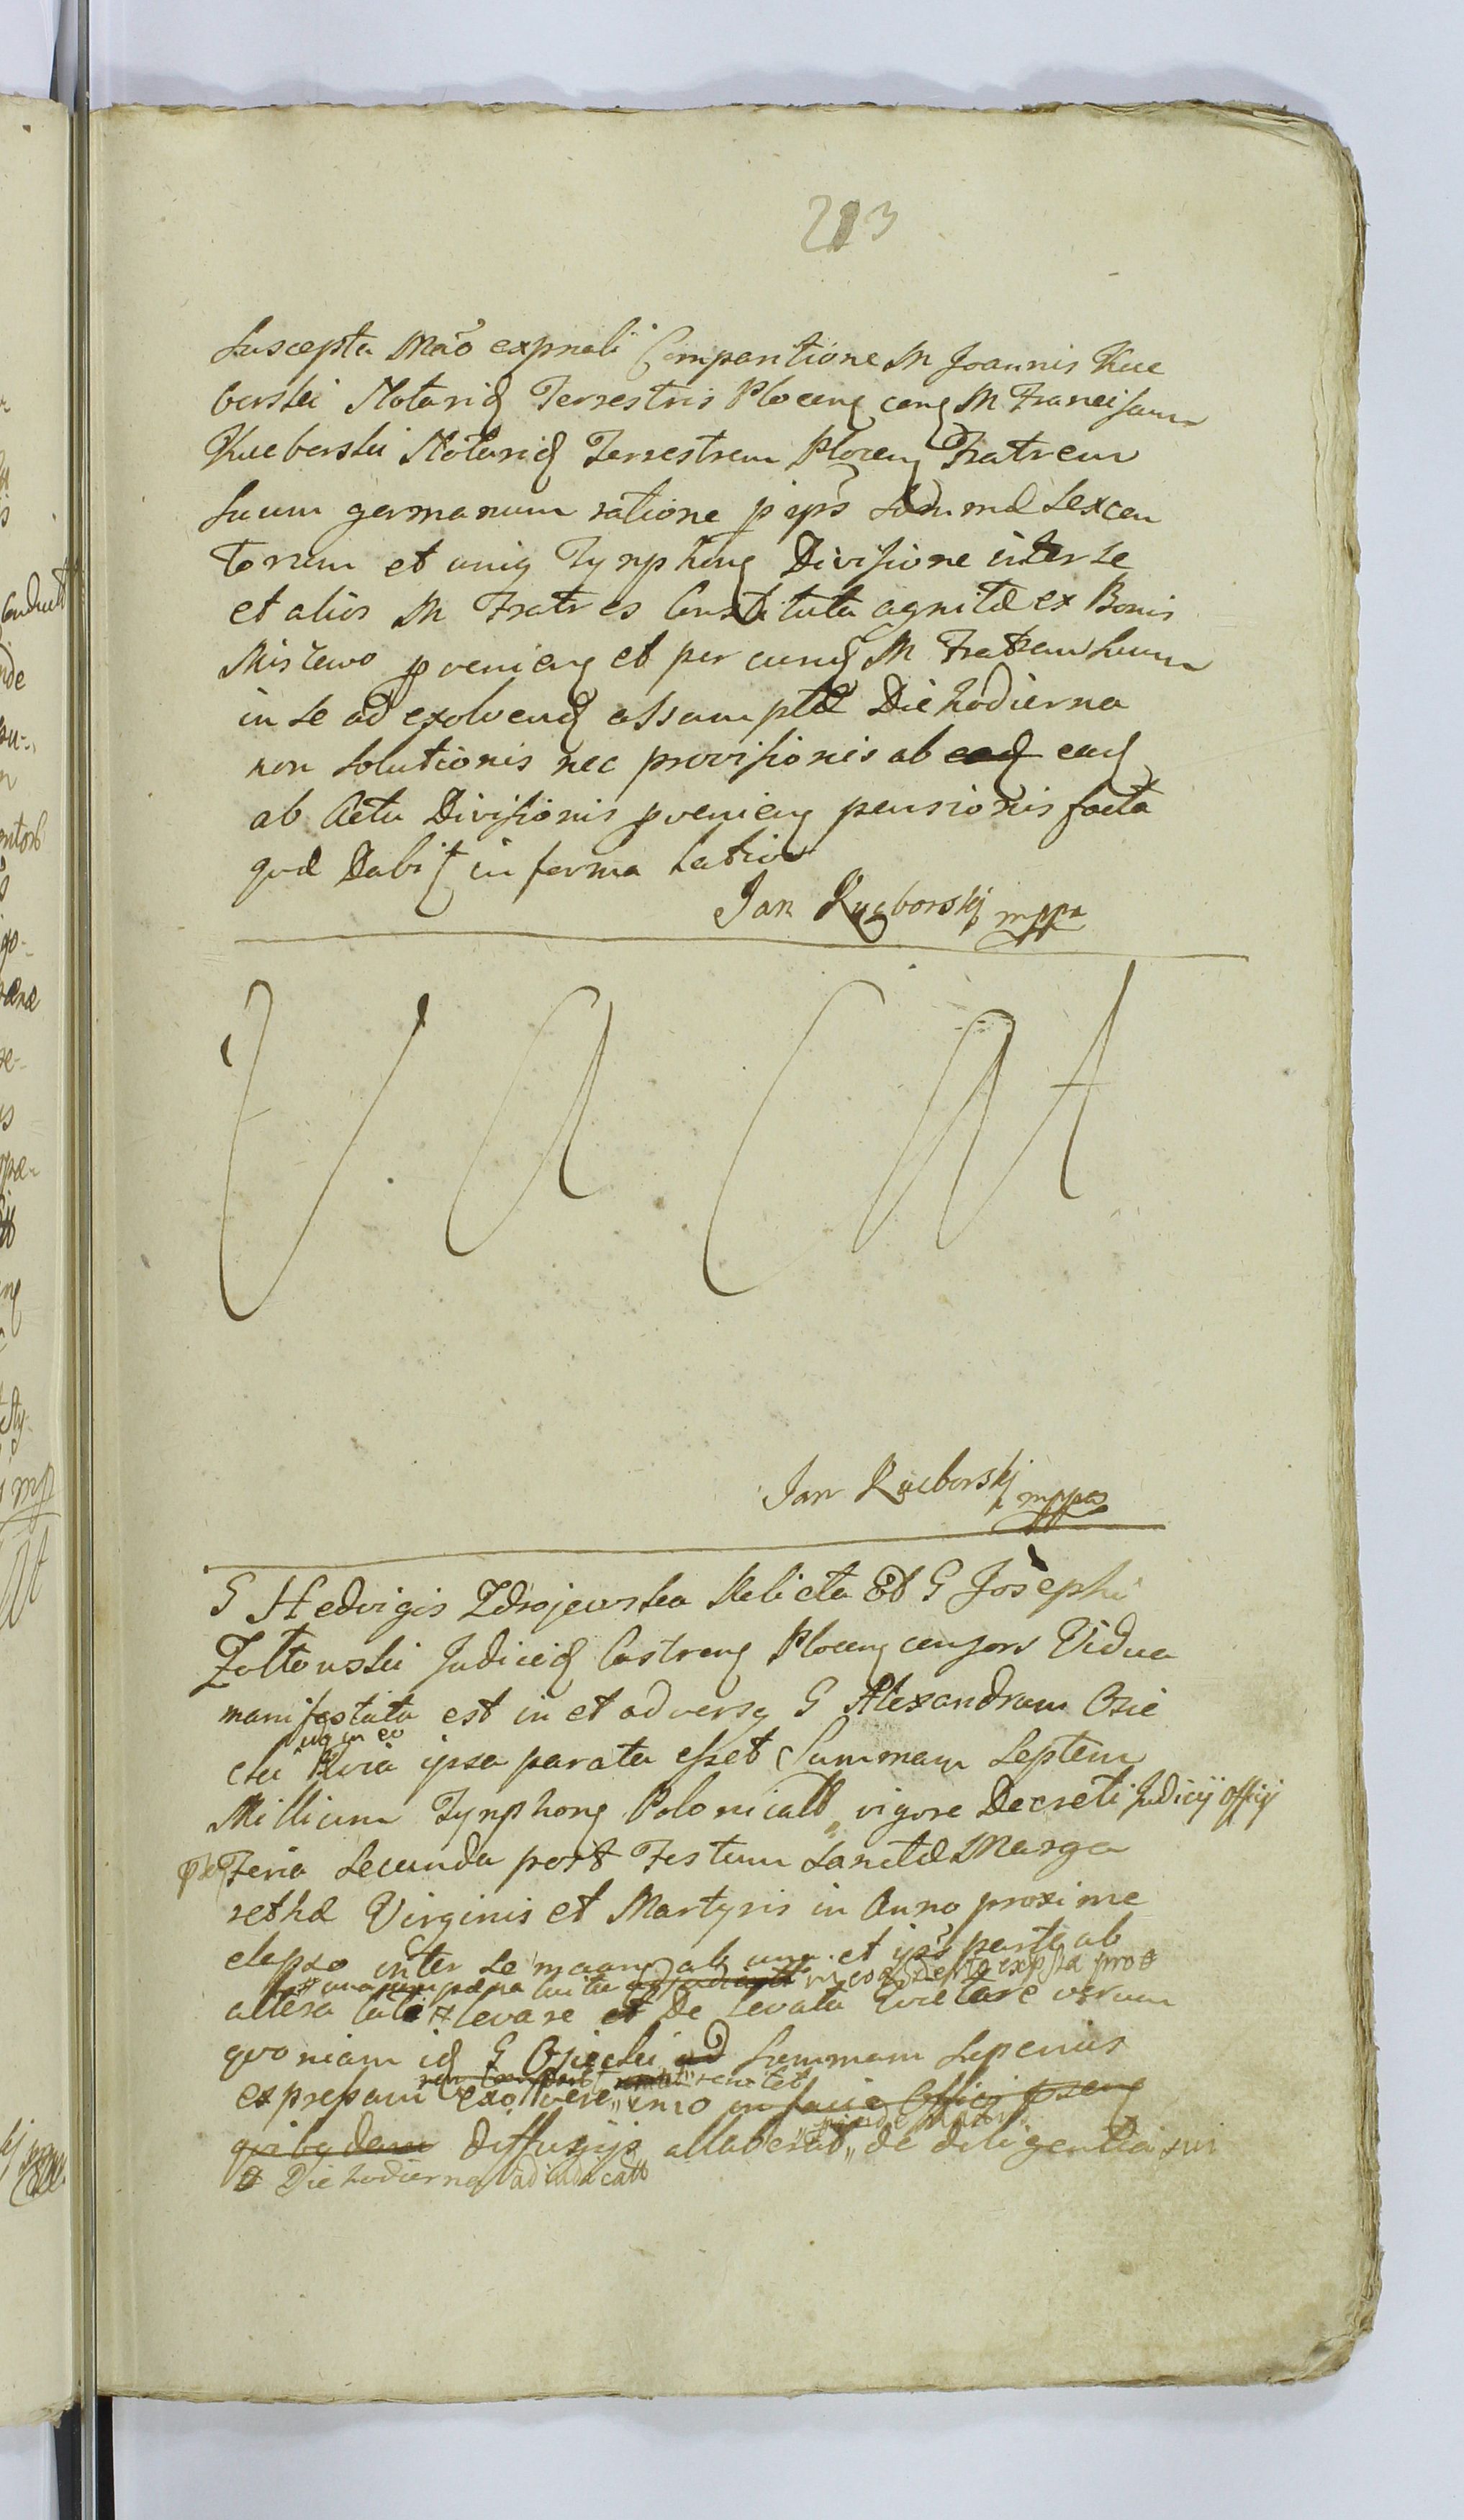 213
Suscepta Mão expnali Compantione M Joannis Kuc
borski Notarij Terrestris Plocen conq M Franciscum
Kucborski Notariq Terrestrem Plocen Fratrem
Suum germanum ratione p ips Summæ Sexcen
torum et uniq Tynphonq Divisione inter se
et alios M Fratres Constituta agnitæ ex Bonis
Miszewo pvenienq et per eunq M Fratrem Suum
in se ad exolvenq assumptæ Die hodierna
non Solutionis nec provisionis ab eaq eaq
ab Actu Divisionis pvenienq pensionis facta
qvæ Dabit in forma latior
Jan Kucborskj mppa
Vacat
Jan Kucborskj mppa
G Hedvigis Zdrojewska Relicta Ol G Josephi
Zołtowski Judiciq Castrenq Plocenq consors Vidua
manifestata est in et adversq G Alexandrum Osie
cki ipsa parata esset Summam Septem
Millium Tynphonq Polonicall vigore Decreti Judicij Officij
Feria Secunda post Festum Sanctæ Marga
rethæ Virginis et Martyris in Anno proxime
elapso inter se ab una et parte ab
altera lati levare et De levata Qvietare verum
qvoniam iq G Osiecki ad Summam Sepenius
expressam exolvere imo in facie Officij psenq
qvibqdam diffugijs allaberat de diligentia sui
Die hodierna adiudicall